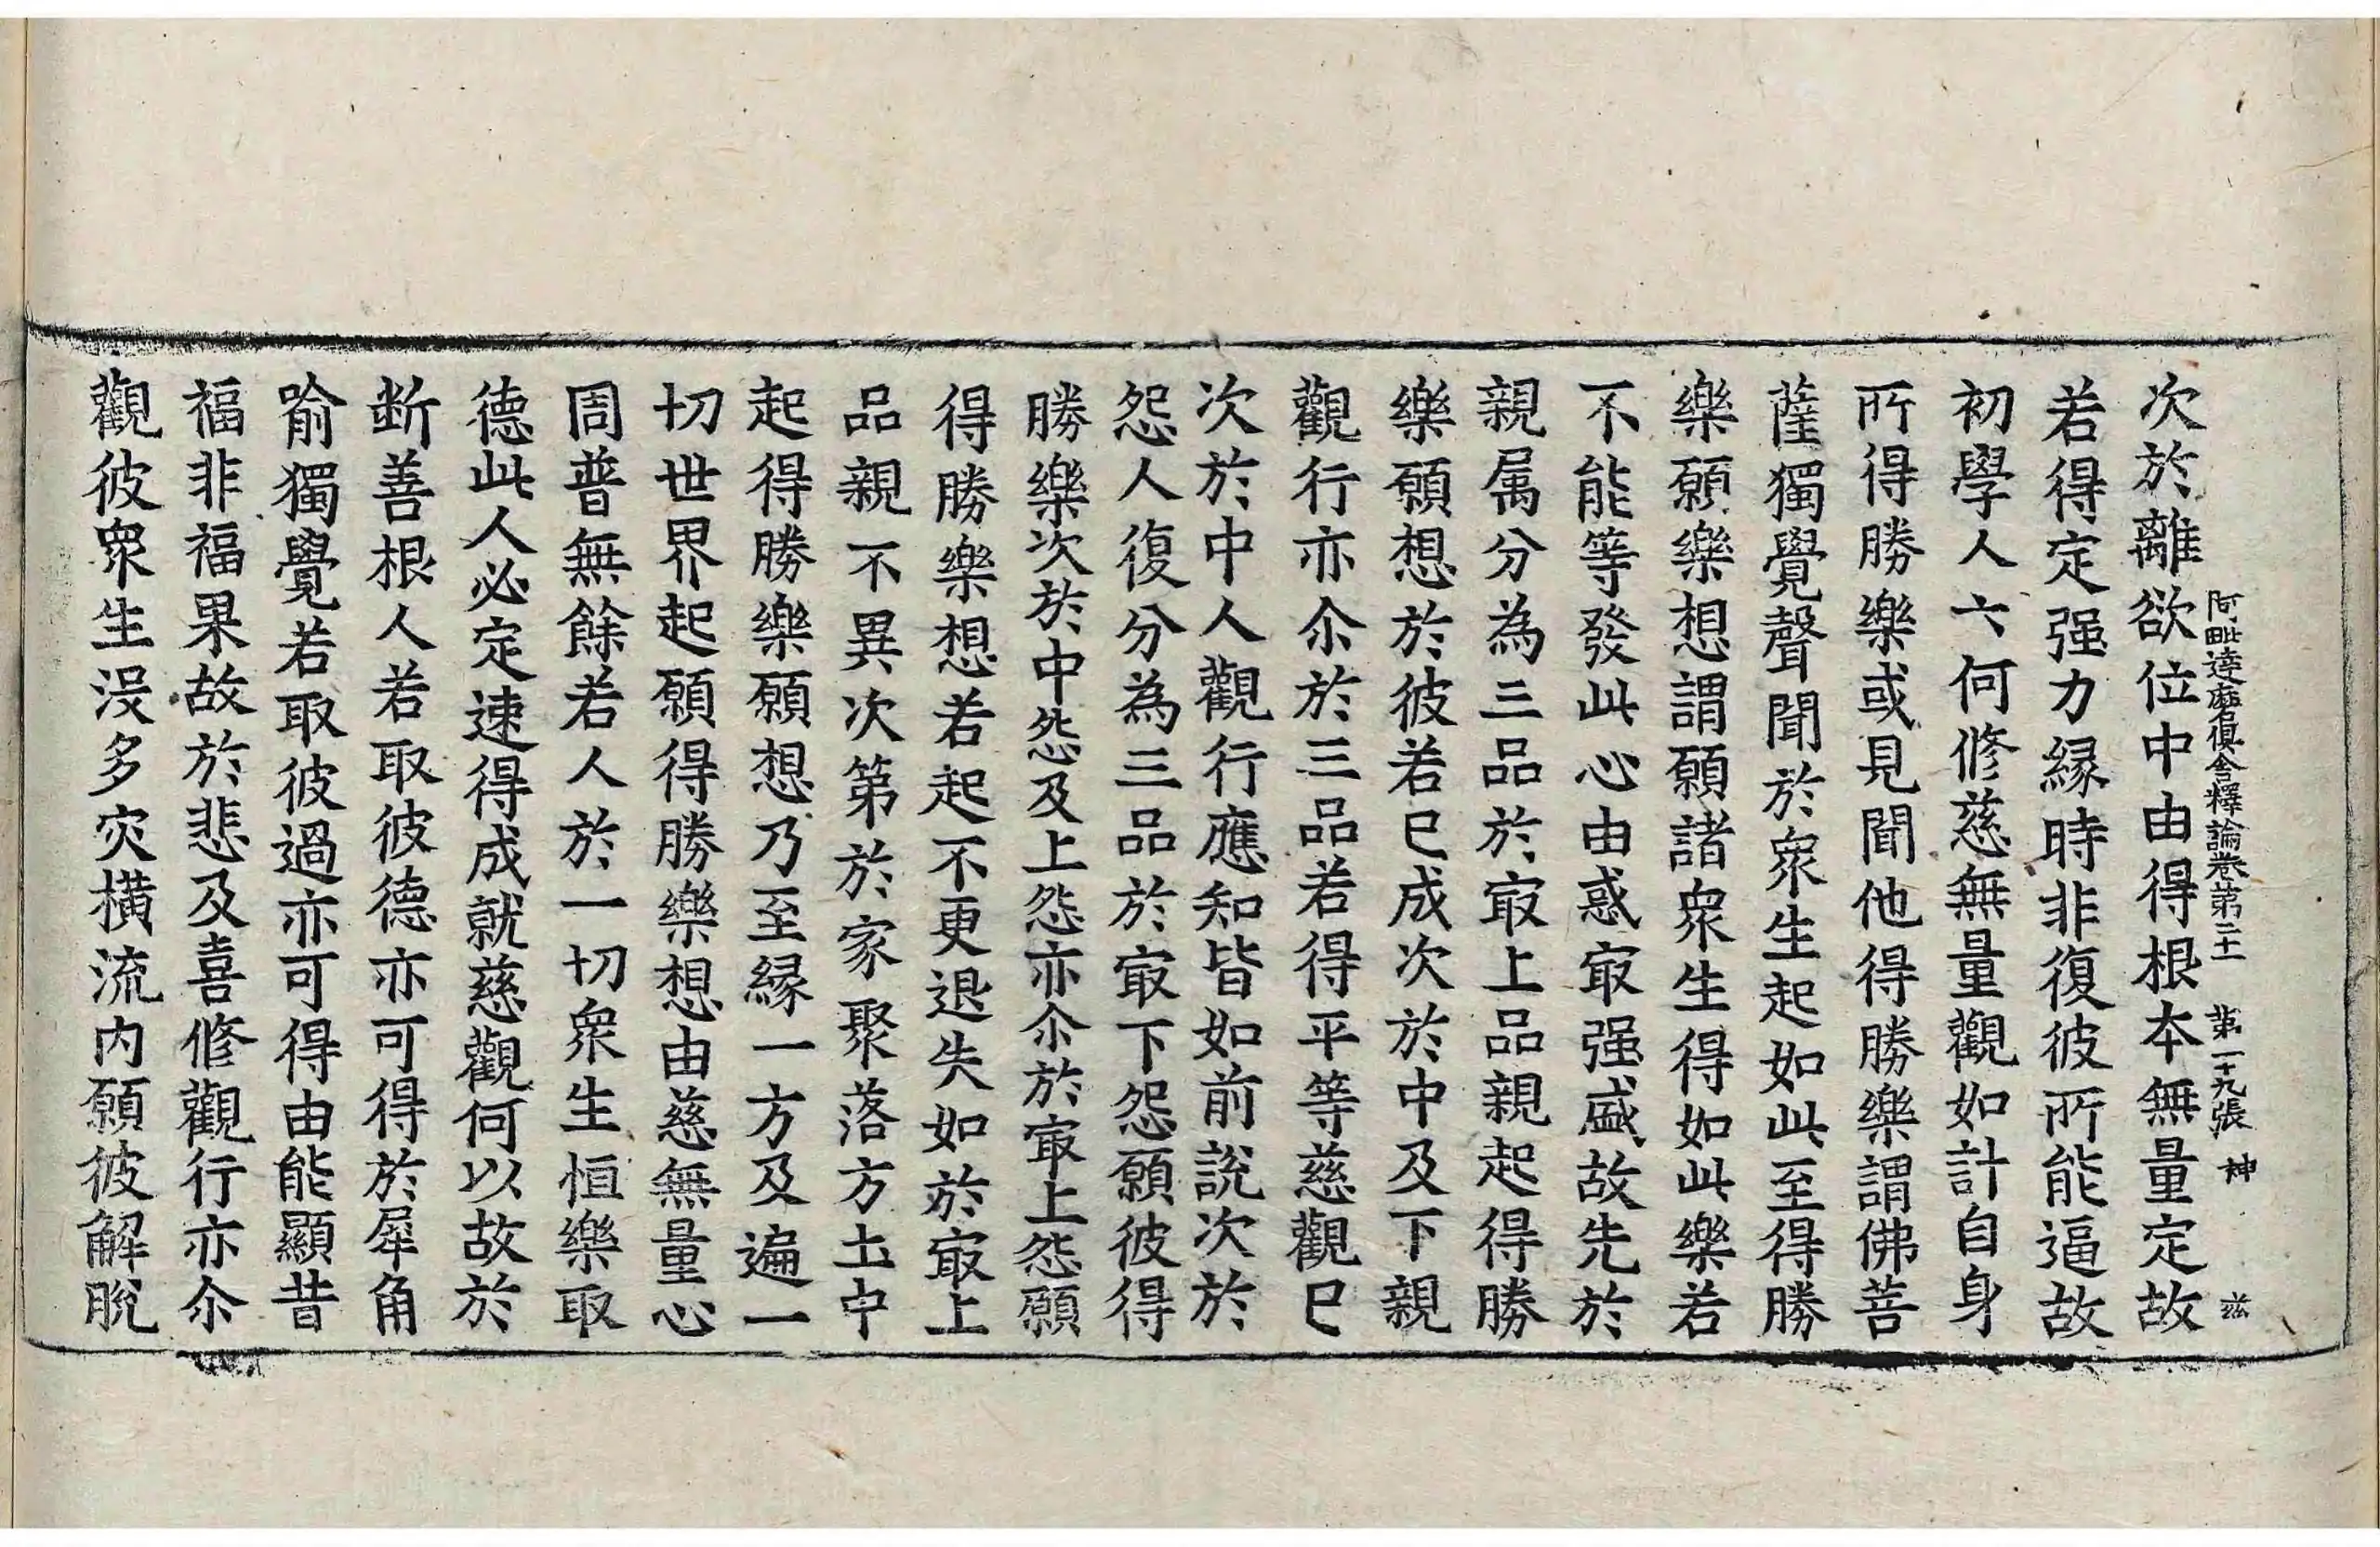 阿毗達磨俱舍釋論卷第二十一 第一十九張 神
次於離欲位中由得根本無量定故
若得定强力縁時非復彼所能逼故
初學人六何修慈無量觀如計自身
所得勝樂或見聞他得勝樂謂佛菩
薩獨覺聲聞於衆生起如此至得勝
樂願樂想謂願諸衆生得如此樂若
不能等發此心由惑㝡强盛故先於
親属分為三品於㝡上品親起得勝
樂願想於彼若已成次於中及下親
觀行亦尒於三品若得平等慈觀已
次於中人觀行應知皆如前說次於
怨人復分為三品於㝡下怨願彼得
勝樂次於中怨及上怨亦尒於㝡上怨願
得勝樂想若起不更退失如於㝡上
品親不異次第於家聚落方土中
起得勝樂願想乃至縁一方及遍一
切世界起願得勝樂想由慈無量心
周普無餘若人於一切衆生恒樂取
德此人必定速得成就慈觀何以故於
断善根人若取彼德亦可得於犀角
喻獨覺若取彼過亦可得由能顯昔
福非福果故於悲及喜修觀行亦尒
觀彼衆生没多灾横流内願彼解脫